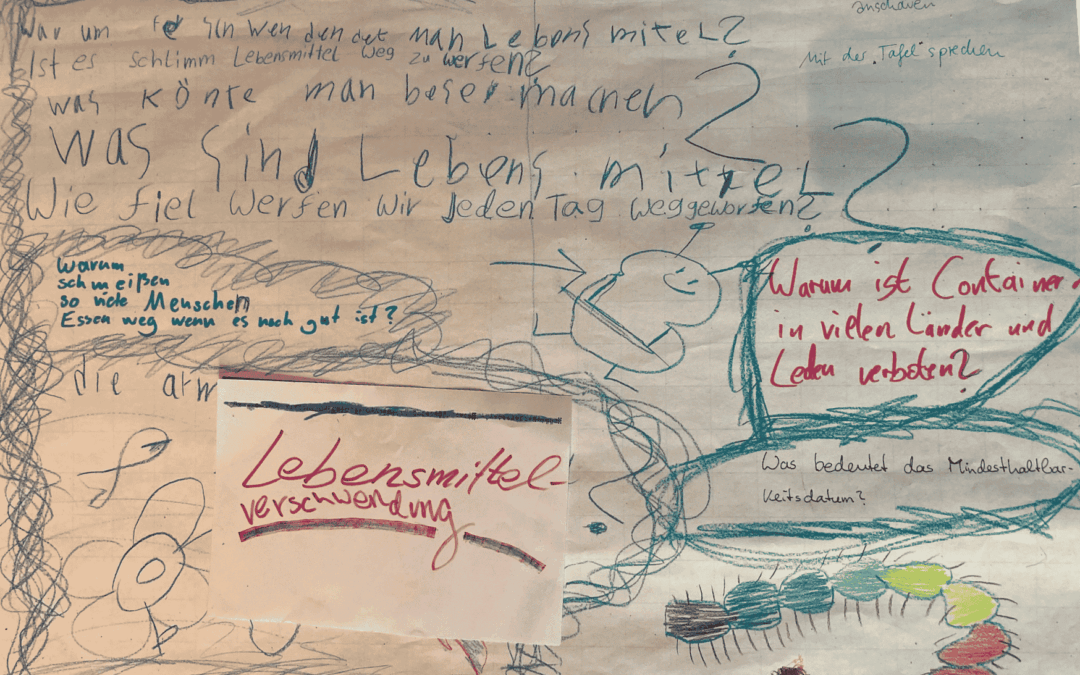 War um man Lebens mitel?
Ist es schlimm Lebensmittel weg zu werfen?
was könte man beser machen
Was sind Lebens mittel?
Wie fiel werfen wir jeden Tag weggeworfen?
anschauen
Mit der "Tafel" sprechen
Warum
schmeißen
so viele Menschen
Essen weg wenn es noch gut ist?
die arm
Lebensmittel-
verschwendung
Warum ist Container
in vielen Länder und
Leden verboten?
Was bedeutet das Mindesthaltbar-
keitsdatum?